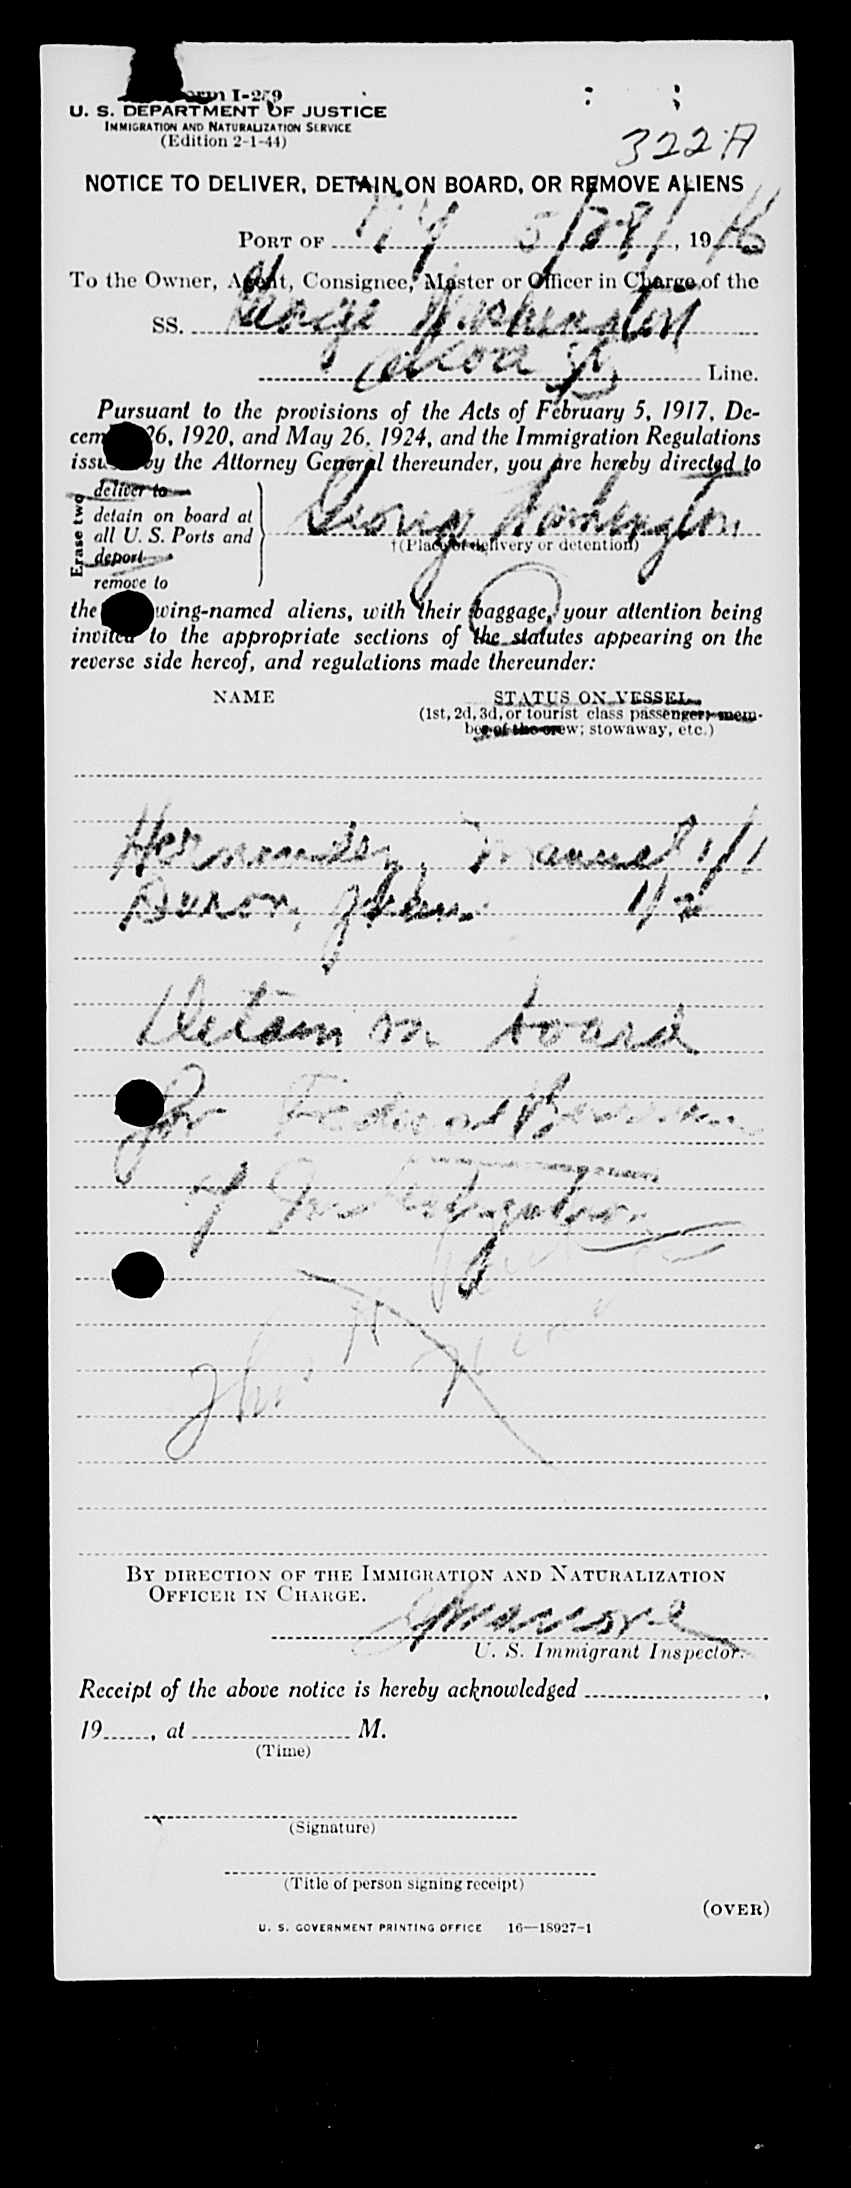 Form I-259
U. S. DEPARTMENT OF JUSTICE
IMMIGRATION AND NATURALIZATION SERVICE
(Edition 2-1-44)
322A
NOTICE TO DELIVER, DETAIN ON BOARD, OR REMOVE ALIENS
PORT OF NY 5/28/, 1946
To the Owner, Agent, Consignee, Master or Officer in Charge of the
SS. George Washington
Alcoa Line.
Pursuant to the provisions of the Acts of February 5, 1917, De-
cem 26, 1920, and May 26, 1924, and the Immigration Regulations
issued by the Attorney General thereunder, you are hereby directed to
Erase two
deliver to
detain on board at
all U. S. Ports and
deport
remove to
George Washington
†(Place of delivery or detention)
the wing-named aliens, with their baggage, your attention being
invited to the appropriate sections of the statutes appearing on the
reverse side hereof, and regulations made thereunder:
NAME STATUS ON VESSEL
(1st, 2d, 3d, or tourist class passenger; mem-
ber of the crew; stowaway, etc.)
Hernandez, Manuel 1/1
1/2
Detain on board
for Federal Bureau
of Investigation
BY DIRECTION OF THE IMMIGRATION AND NATURALIZATION
OFFICER IN CHARGE.
U. S. Immigrant Inspector.
Receipt of the above notice is hereby acknowledged ,
19 , at M.
(Time)
(Signature)
(Title of person signing receipt)
(OVER)
U. S. GOVERNMENT PRINTING OFFICE 16—18927-1